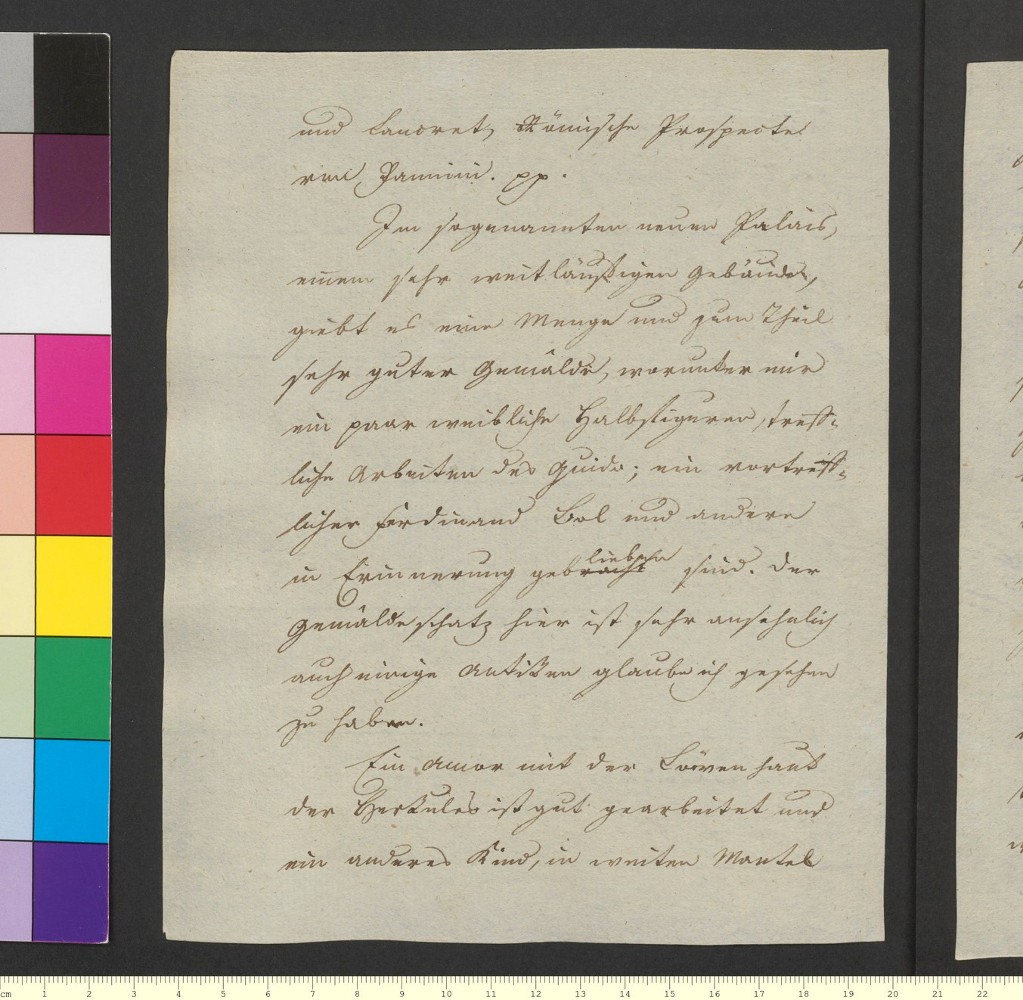 und Lancret, Römische Prospecte
von Pannini. pp.
Im sogenannten neuen Palais,
einem sehr weitläuftigen Gebäude,
giebt es eine Menge und zum Theil
sehr guter Gemälde, worunter mir
ein paar weibliche Halbfiguren, treff-
liche Arbeiten des Guido; ein vortreff-
licher Ferdinand Bol und andere
in Erinnerung geblieben sind. Der
Gemäldeschatz hier ist sehr ansehnlich
auch einige Antiken glaube ich gesehen
zu haben.
Ein Amor mit der Löwenhaut
der Herkules ist gut gearbeitet und
ein anderes Kind, in weiten Mantel
cm 1 2 3 4 5 6 7 8 9 10 11 12 13 14 15 16 17 18 19 20 21 22